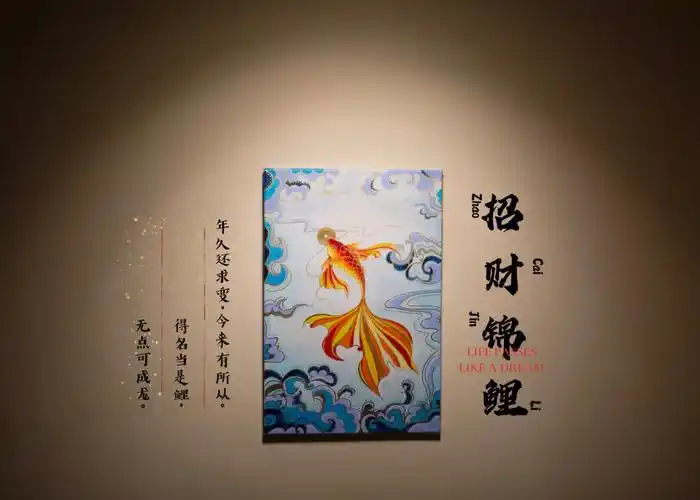 招财锦鲤
Zhao
Cai
Jin
Li
LIFE PASSES
LIKE A DREAM
年久还求变，今来有所从。
得名当是鲤，
无点可成龙。